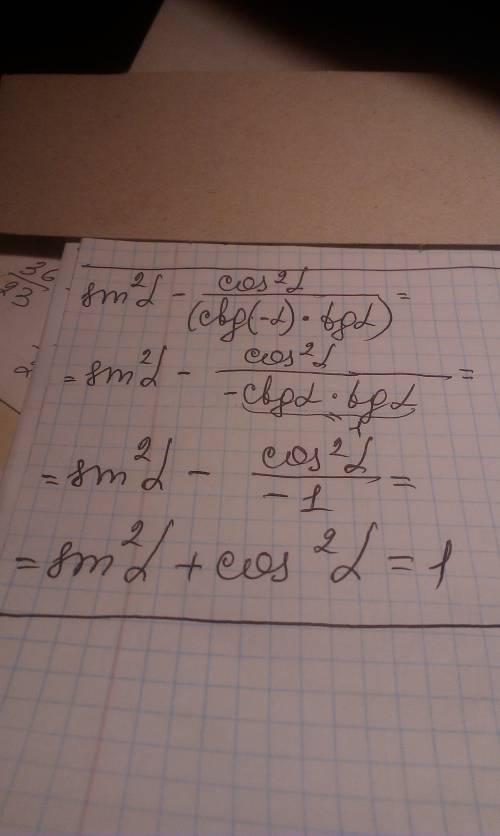 sin²α - cos²α / (ctg(-α) · tgα) =
= sin²α - cos²α / -ctgα · tgα =
1
= sin²α - cos²α / -1 =
= sin²α + cos²α = 1